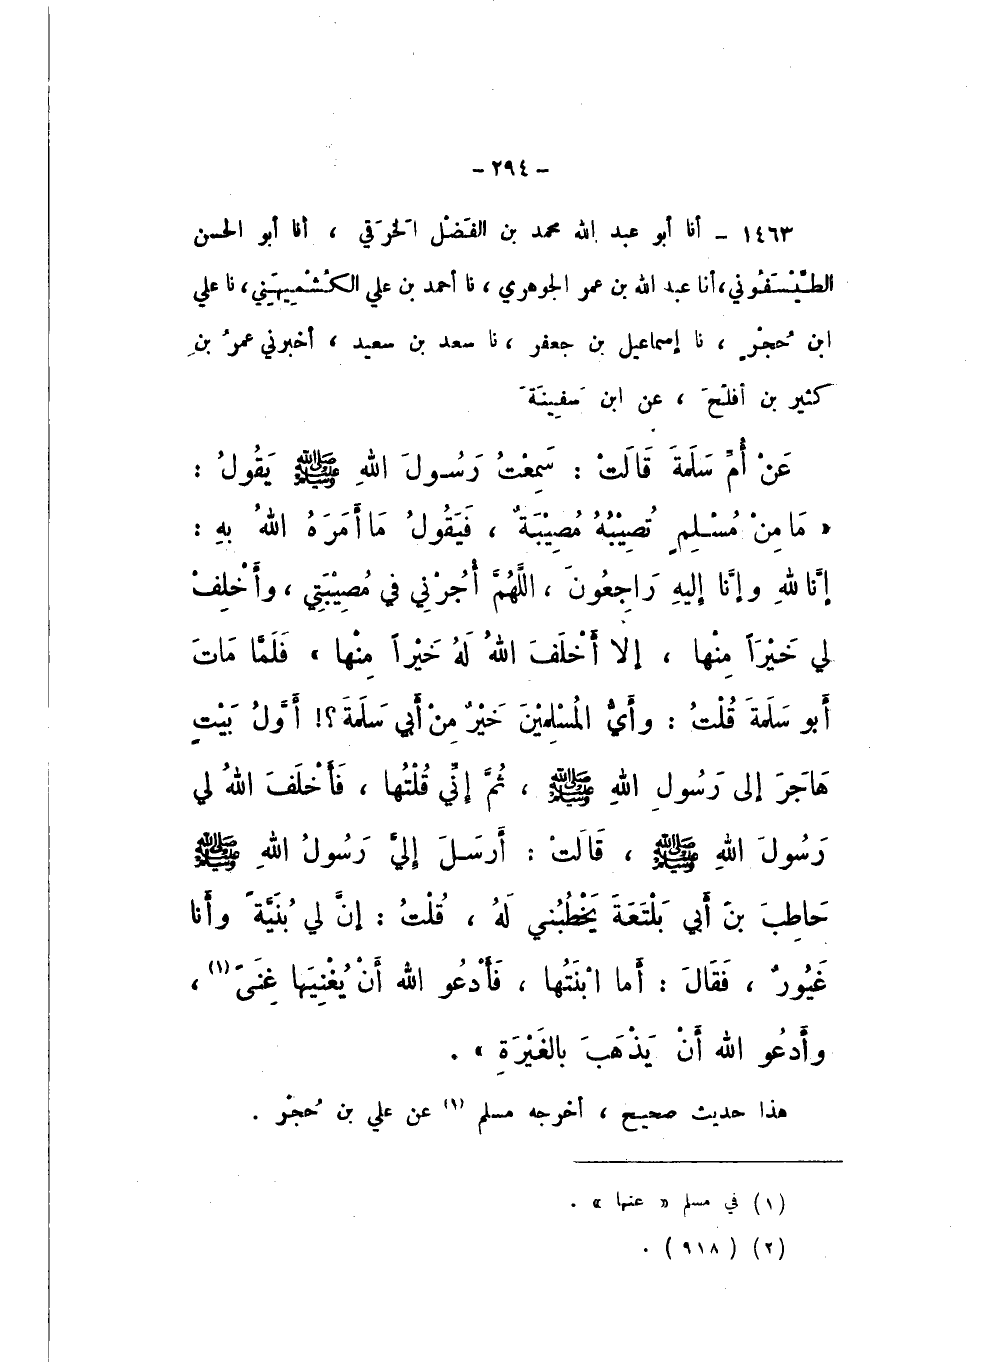 - ٢٩٤ -
١٤٦٣ – أنا أبو عبد الله محمد بن الفَضْل الخَرَقي ، أنا أبو الحسن
الطَّيْسَفُوني، أنا عبد الله بن عمر الجوهري ، نا أحمد بن علي الكُشْمِيهَني، نا علي
ابن حُجْرٍ ، نا إسماعيل بن جعفر ، نا سعد بن سعيد ، أخبرني عمرُ بنِ
كثير بن أفلَحَ ، عن ابن سَفِينَةَ
عَنْ أُمِّ سَلَمَةَ قَالَتْ : سَمِعْتُ رَسُولَ اللهِ ﷺ يَقُولُ :
« مَا مِنْ مُسْلِمٍ تُصِيْبُهُ مُصِيْبَةٌ ، فَيَقُولُ مَا أَمَرَهُ اللهُ بهِ :
إنَّا للهِ وإنَّا إليهِ رَاجِعُونَ ، اللَّهُمَّ أُجُرْنِي في مُصِيْبَتِي ، وأَخْلِفْ
لي خَيْرَاً مِنْها ، إلا أَخْلَفَ اللهُ لَهُ خَيْراً مِنْها » فَلَمَّا مَاتَ
أَبو سَلَمَةَ قُلْتُ : وأَيُّ المُسْلِمِيْنَ خَيْرٌ مِنْ أَبي سَلَمَةَ ؟! أَوَّلُ بَيْتٍ
هَاجَرَ إلى رَسُولِ اللهِ ﷺ ، ثُمَّ إنِّي قُلْتُها ، فَأَخْلَفَ اللهُ لي
رَسُولَ اللهِ ﷺ ، قَالَتْ : أَرسَلَ إليَّ رَسُولُ اللهِ ﷺ
حَاطِبَ بنَ أَبي بَلْتَعَةَ يَخْطُبُني لَهُ ، قُلْتُ : إنَّ لي بُنَيَّةً وأَنا
غَيُورٌ ، فَقَالَ : أَما ابْنَتُها ، فَأَدْعُو الله أَنْ يُغْنِيَها غِنَىً (١) ،
وأَدعُو الله أَنْ يَذْهَبَ بالغَيْرَةِ » .
هذا حديث صحيح ، أخرجه مسلم (١) عن علي بن حُجْر .
(١) في مسلم « عنها » .
(٢) (٩١٨) .